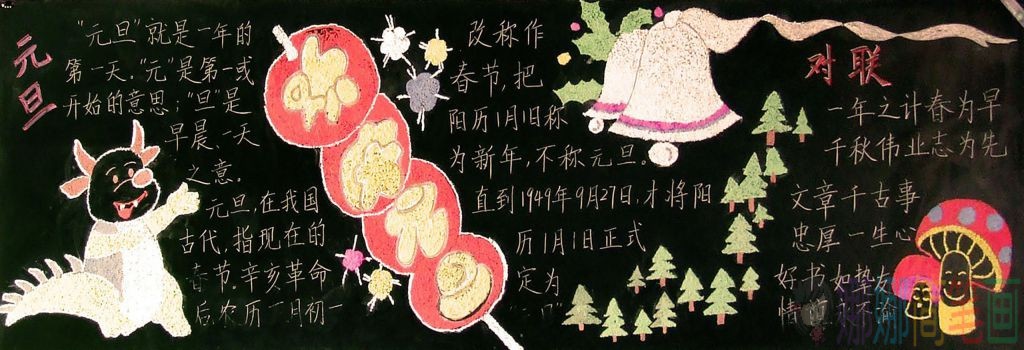 元旦
"元旦"就是一年的
第一天."元"是第一或
开始的意思;"旦"是
早晨、一天
之意。
元旦,在我国
古代,指现在的
春节.辛亥革命
后,农历一月初一
改称作
春节,把
阳历1月1日称
为新年,不称元旦。
直到1949年9月27日,才将阳
历1月1日正式
定为
对联
一年之计春为早
千秋伟业志为先
文章千古事
忠厚一生心
好书如挚友
情